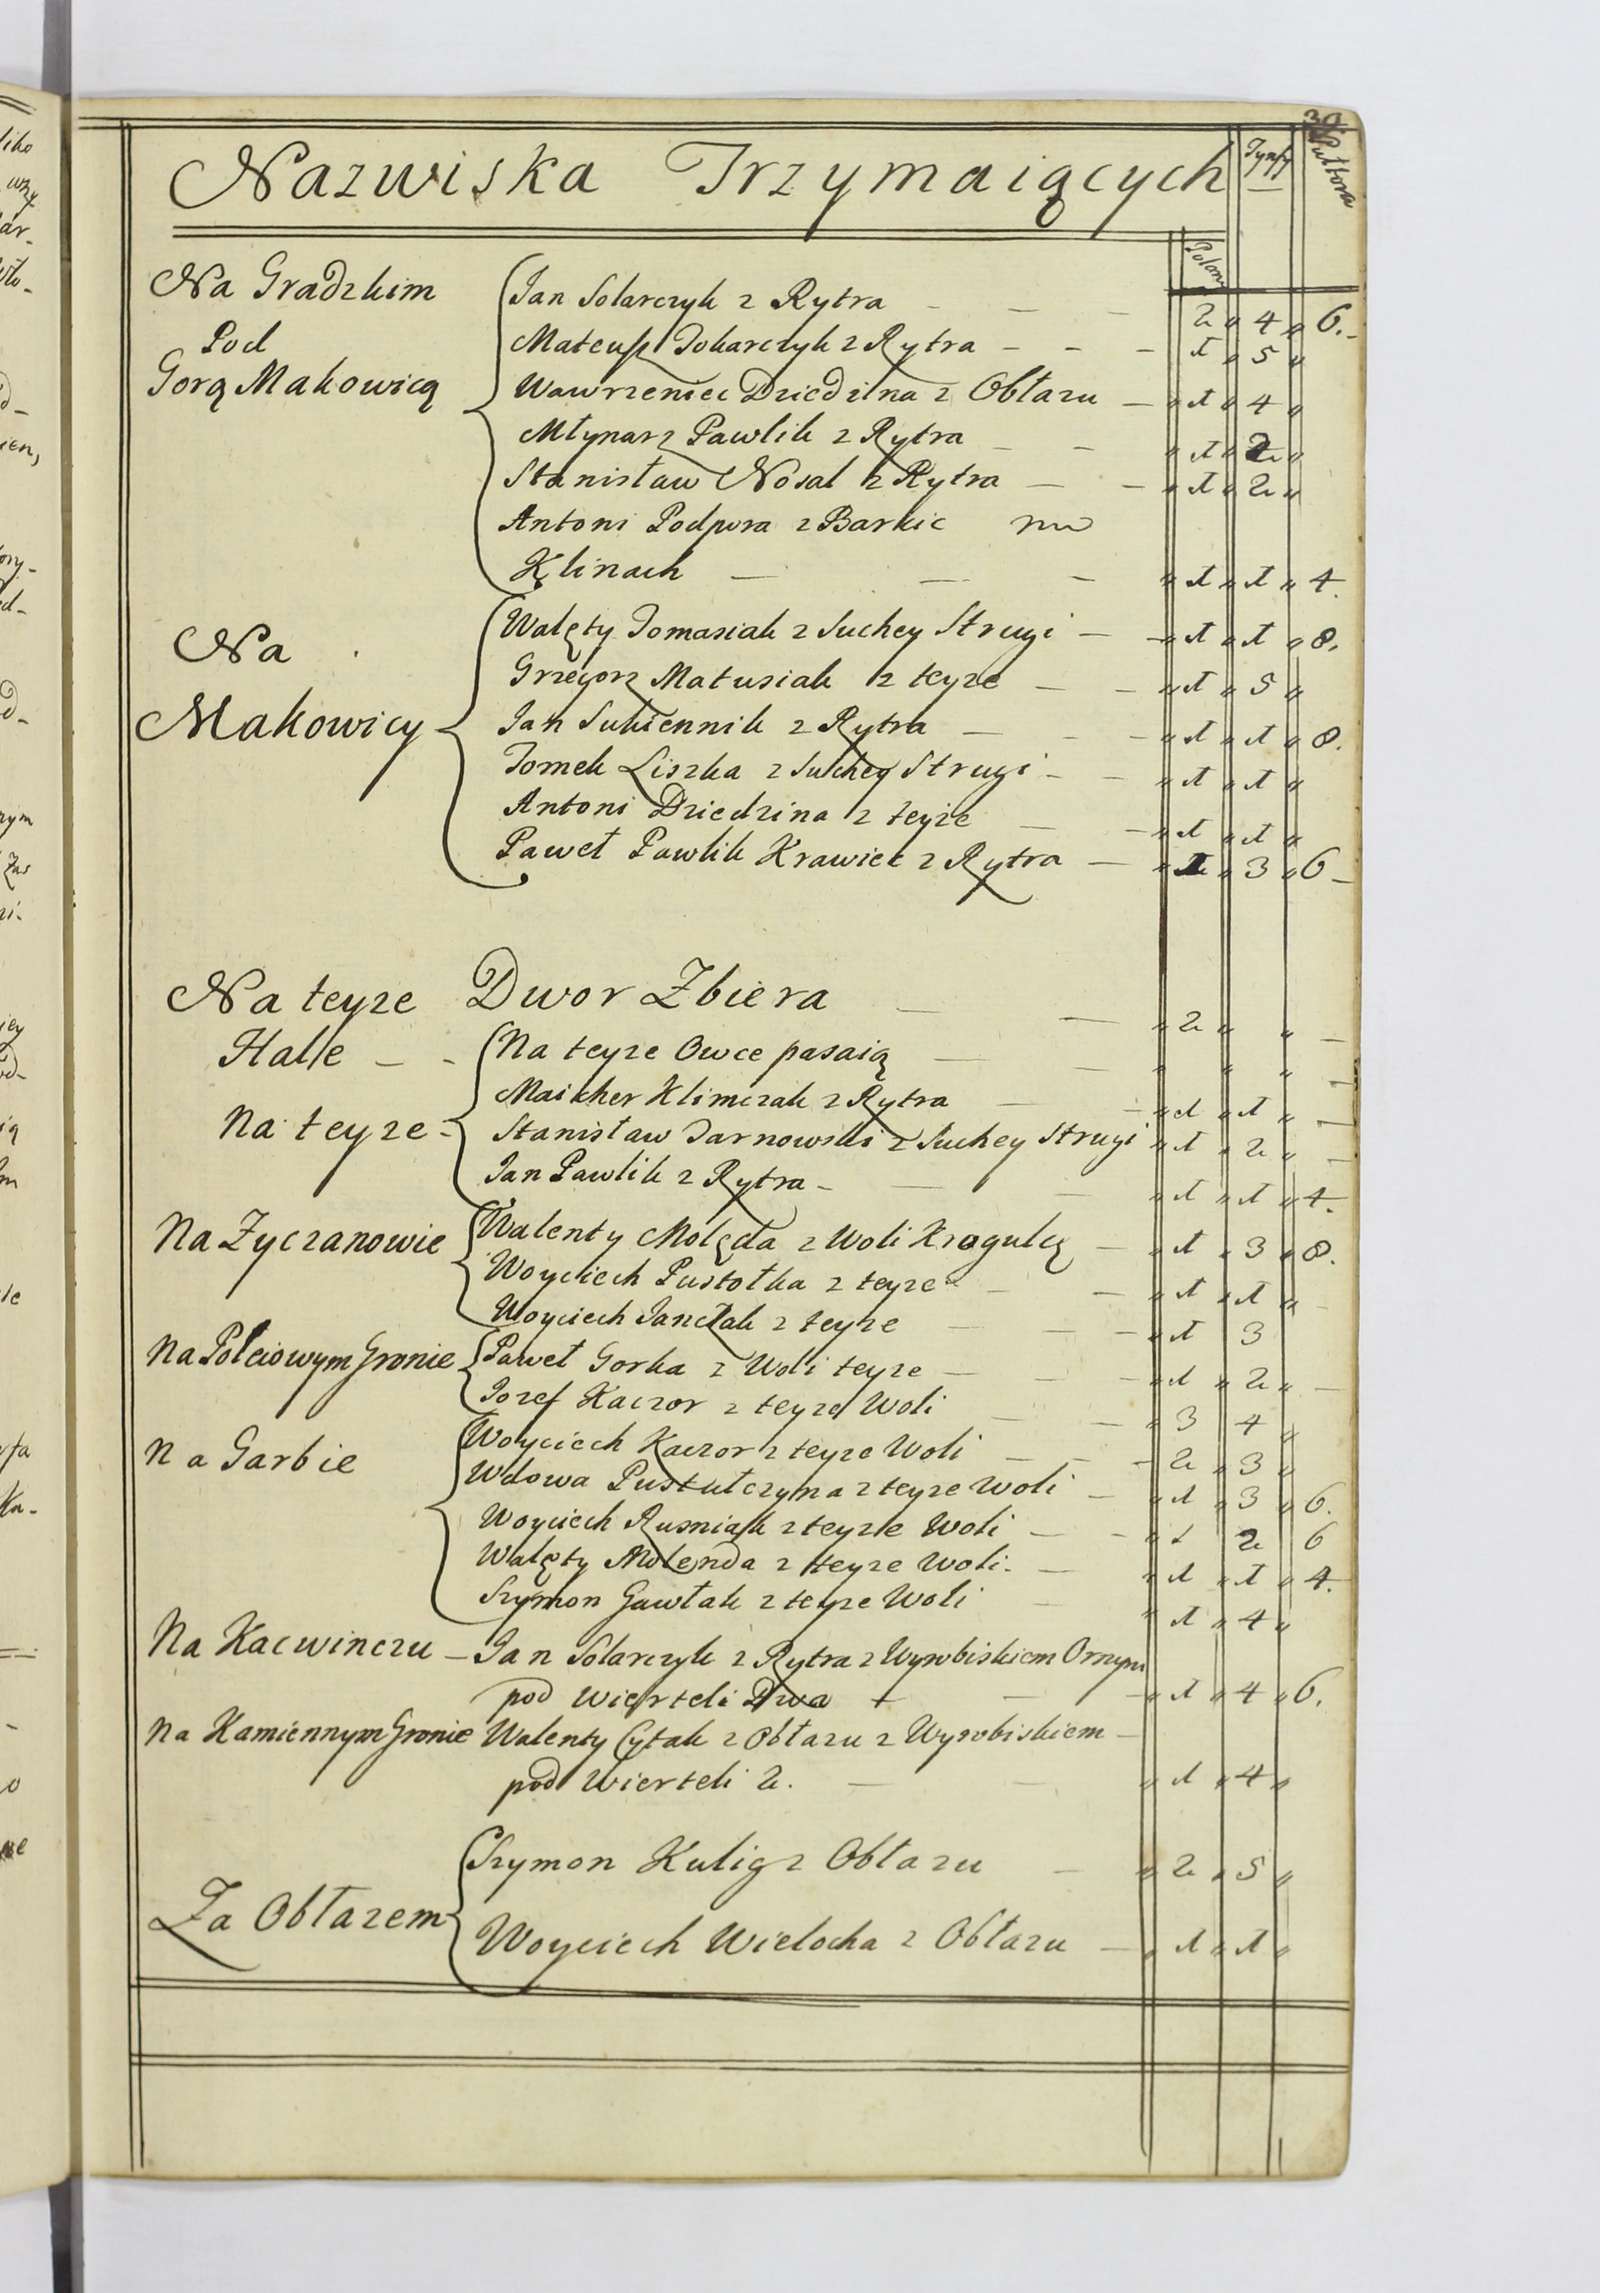 Nazwiska Trzymaiących Tynfy
Polany
Na Gradzkim Jan Solarczyk z Rytra - - - 2 „ 4 „ 6.-
Pod Mateusz Tokarczyk z Rytra - - - 1 „ 5 „
Gorą Makowicą Wawrzeniec Dziedzina z Obłazu - „ 1 „ 4 „
Młynarz Pawlik z Rytra - - „ 1 „ 2 „
Stanisław Nosal z Rytra - - „ 1 „ 2 „
Antoni Podpora z Barkic na
Klinach - - - „ 1 „ 1 „ 4.
Na Walęty Tomasiak z Suchey Strugi - - „ 1 „ 1 „ 8.
Grzegorz Matusiak z teyze - - „ 1 „ 5 „
Makowicy Jan Sukiennik z Rytra - - - „ 1 „ 1 „ 8.
Tomek Liszka z Suchey Strugi - - „ 1 „ 1 „
Antoni Dziedzina z teyze - - „ 1 „ 1 „
Paweł Pawlik Krawiec z Rytra - „ 1 „ 3 „ 6 -
Na teyze Dwor Zbiera - - „ 2 „ „ -
Halle - - Na teyze Owce pasaią - - „ „ „ -
Maicher Klimczak z Rytra - - „ 1 „ 1 „ -
Na teyze - Stanisław Tarnowski z Suchey Strugi „ 1 „ 2 „ -
Jan Pawlik z Rytra - - - „ 1 „ 1 „ 4.
Na Zyczanowie Walenty Molęda z Woli Krogulcę - „ 1 „ 3 „ 8.
Woyciech Pustołka z teyze - - - „ 1 „ 1 „ -
Woyciech Janczak z teyze - - - „ 1 3
Na Połciowym Gronie Paweł Gorka z Woli teyze - - - „ 1 „ 2 „ -
Jozef Kaczor z teyze Woli - - „ 3 4 „
Na Garbie Woyciech Kaczor z teyze Woli - - - 2 „ 3 „
Wdowa Pustułczyna z teyze Woli - „ 1 „ 3 „ 6.
Woyciech Rusniak z teyze Woli - - „ 1 2 6
Walęty Molenda z teyze Woli. - „ 1 „ 1 „ 4.
Szymon Gawłak z teyze Woli - „ 1 „ 4 „
Na Kacwinczu - Jan Solarczyk z Rytra z Wyrobiskiem Ornym
pod Wierteli Dwa + - - „ 1 „ 4 „ 6.
Na Kamiennym Gronie Walenty Cytak z Obłazu z Wyrobiskiem -
pod Wierteli 2. - - „ 1 „ 4 „
Szymon Kulig z Obłazu - „ 2 „ 5 „
Za Obłazem
Woyciech Wielocha z Obłazu - „ 1 „ 1 „